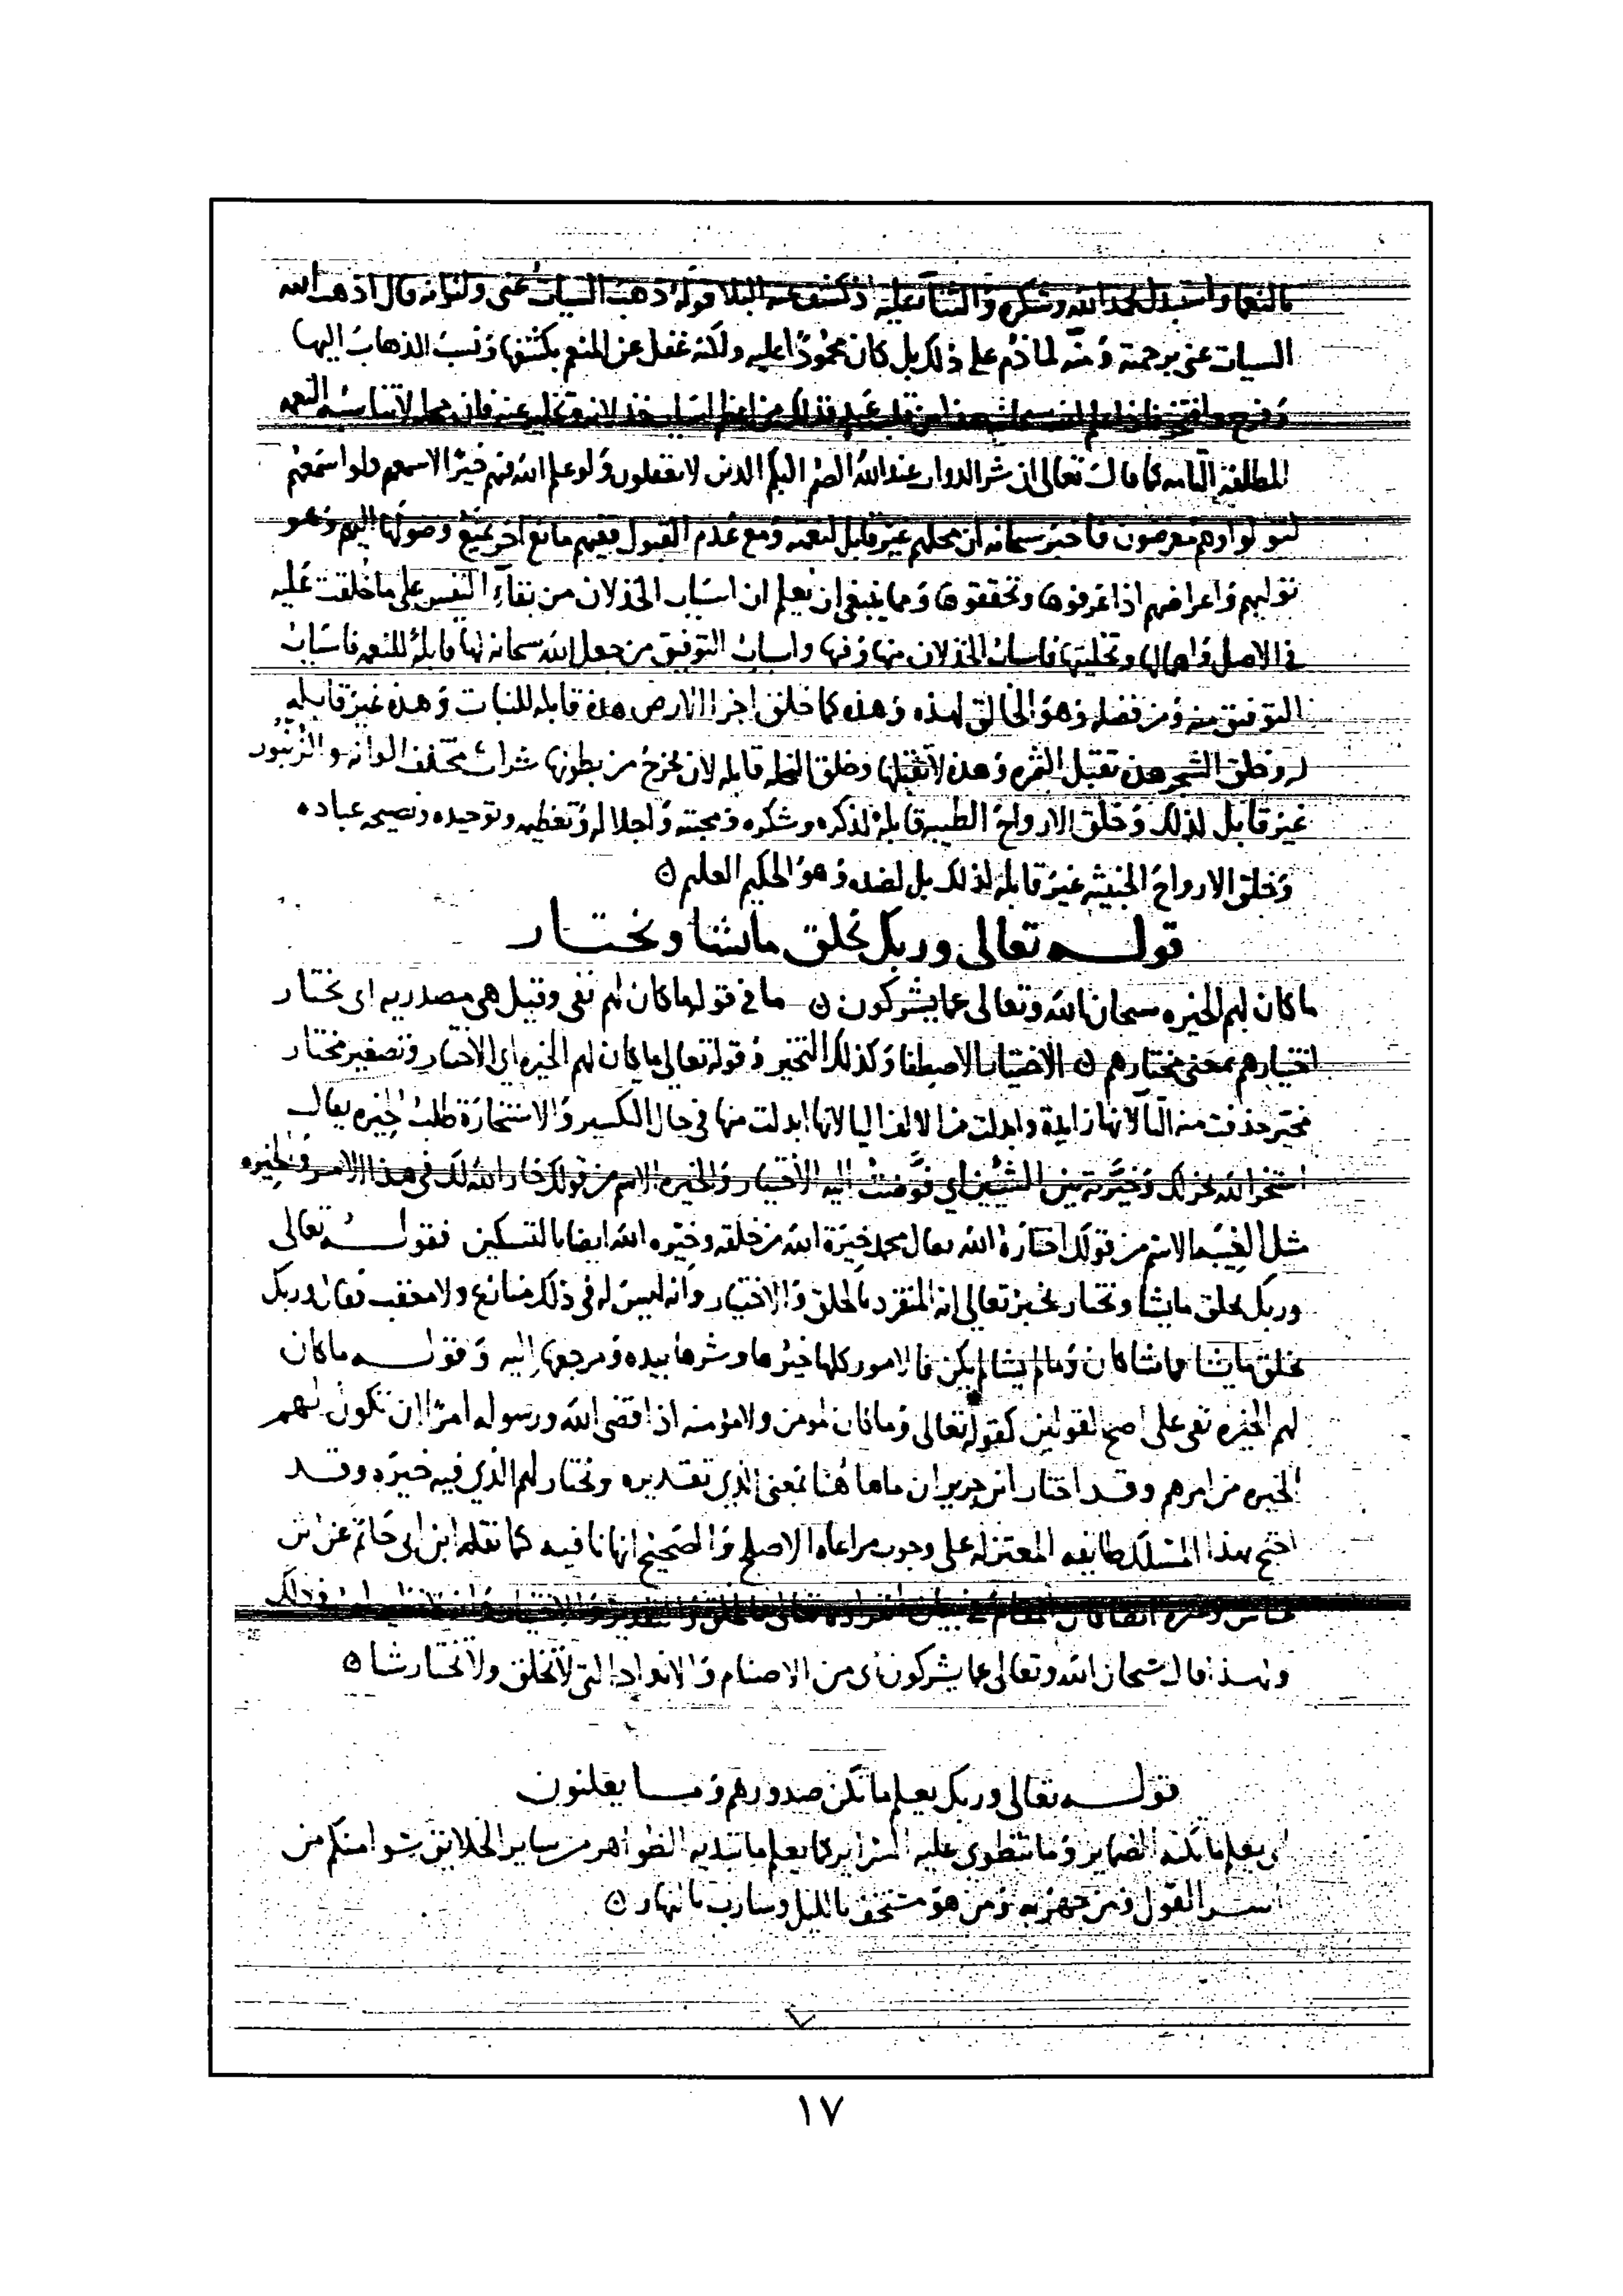 بالنعما واستبدل بحمد الله وشكره والثنا عليه اذ كشف عنه البلا قوله ذهب السيات عنى ولو انه قال اذهب الله
السيات عنى برحمته ومنه لما ذم على ذلك بل كان محمودًا عليه ولكنه غفل عن المنعم بكشفها ونسب الذهاب اليها
وفرح وافتخر فاذا علم الله سبحانه هذا من قلب عبد فذلك من اعظم اسباب خذلانه وتخليه عنه فان محله لا تناسبه النعمه
المطلقه التامه كما قال تعالى ان شر الدواب عند الله الصم البكم الذين لا يعقلون ولو علم الله فيهم خيرًا لاسمعهم ولو اسمعهم
لتولوا وهم معرضون فاخبر سبحانه ان محلهم غير قابل لنعمته ومع عدم القبول ففيهم مانع اخر يمنع وصولها اليهم وهو
توليهم واعراضهم اذا عرفوها وتحققوها ومما ينبغى ان يعلم ان اسباب الخذلان من بقآء النفس على ما خلقت عليه
فى الاصل واهمالها وتخليتها فاسباب الخذلان منها وفيها واسباب التوفيق من جعل الله سبحانه لها قابلة للنعمه فاسباب
التوفيق منه ومن فضله وهو الخالق لهذه وهذه كما خلق اجزا الارض هذه قابله للنبات وهذه غير قابله
له وخلق الشجر هذه تقبل الثمره وهذه لا تقبلها وخلق النحله قابله لان يخرج من بطونها شراب مختلف الوانه والزنبور
غير قابل لذلك وخلق الارواح الطيبه قابلة لذكره وشكره ومحبته واجلاله وتعظيمه وتوحيده ونصيحه عباده
وخلق الارواح الخبيثه غير قابله لذلك بل لضده وهو الحكيم العليم ۞
قوله تعالى وربك يخلق ما يشا ويختار
ما كان لهم الخيره سبحان الله وتعالى عما يشركون ۞ ما فى قوله ما كان لهم نفى وقيل هى مصدريه اى يختار
اختيارهم بمعنى مختارهم ۞ الاختيار الاصطفا وكذلك التخير وقوله تعالى ما كان لهم الخيره اى الاختيار وتصغير مختار
مخير حذفت منه التآ لانها زايدة وابدلت من الالف اليا لانها ابدلت منها فى حال التكسير والاستخارة طلب الخيره يقال
استخر الله يخر لك وخيرته بين الشيئين اى فوضت اليه الاختيار والخيره الاسم من قولك خار الله لك فى هذا الامر والخيره
مثل العنبه الاسم من قولك اختاره الله يقال محمد خيرة الله من خلقه وخيره الله ايضا بالتسكين فقوله تعالى
وربك يخلق ما يشا ويختار يخبر تعالى انه المنفرد بالخلق والاختيار وانه ليس له فى ذلك منازع ولا معقب فقال وربك
يخلق ما يشا فما شا كان وما لم يشا لم يكن فالامور كلها خيرها وشرها بيده ومرجعها اليه وقوله ما كان
لهم الخيره نفى على اصح القولين كقوله تعالى وما كان لمومن ولا مؤمنه اذا قضى الله ورسوله امرًا ان تكون لهم
الخيره من امرهم وقد اختار ابن جرير ان ما هاهنا بمعنى الذى تقديره ويختار لهم الذى فيه خيره وقد
احتج بهذا المسلك طايفه المعتزله على وجوب مراعاه الاصلح والصحيح انها نافيه كما نقله ابن ابى حاتم عن ابن
عباس وغيره ايضا فان المقام فى بيان انفراده تعالى بالخلق والتقدير والاختيار وانه لا نظير له فى ذلك
ولهذا قال سبحان الله وتعالى عما يشركون اى من الاصنام والانداد التى لا تخلق ولا تختار شا ۞
قوله تعالى وربك يعلم ما تكن صدورهم وما يعلنون
اى يعلم ما تكنه الضماير وما تنطوى عليه السراير كما يعلم ما تبديه الظواهر من ساير الخلايق سوا منكم من
اسر القول ومن جهر به ومن هو مستخف بالليل وسارب بالنهار ۞
٧
١٧